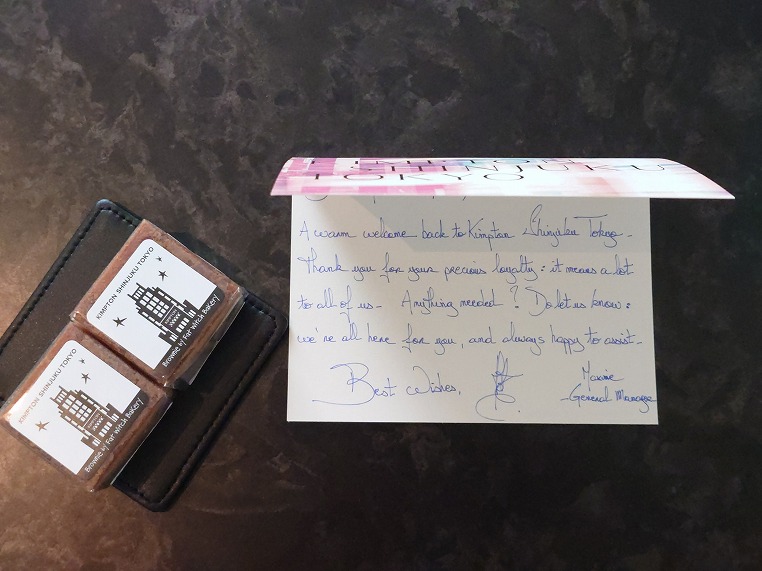 KIMPTON
SHINJUKU
TOKYO
A warm welcome back to Kimpton Shinjuku Tokyo -
Thank you for your precious loyalty : it means a lot
to all of us - Anything needed ? Do let us know :
we're all here for you, and always happy to assist -
Best Wishes,
Maxime
- General Manager
KIMPTON SHINJUKU TOKYO
Brownie w/ Far Witch Bakery
KIMPTON SHINJUKU TOKYO
Brownie w/ Far Witch Bakery